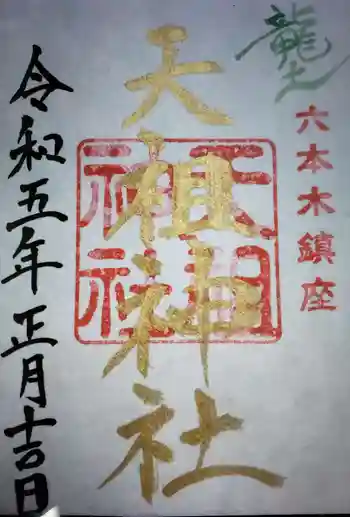 龍土
六本木鎮座
天祖神社
天祖
神社
令和五年正月吉日